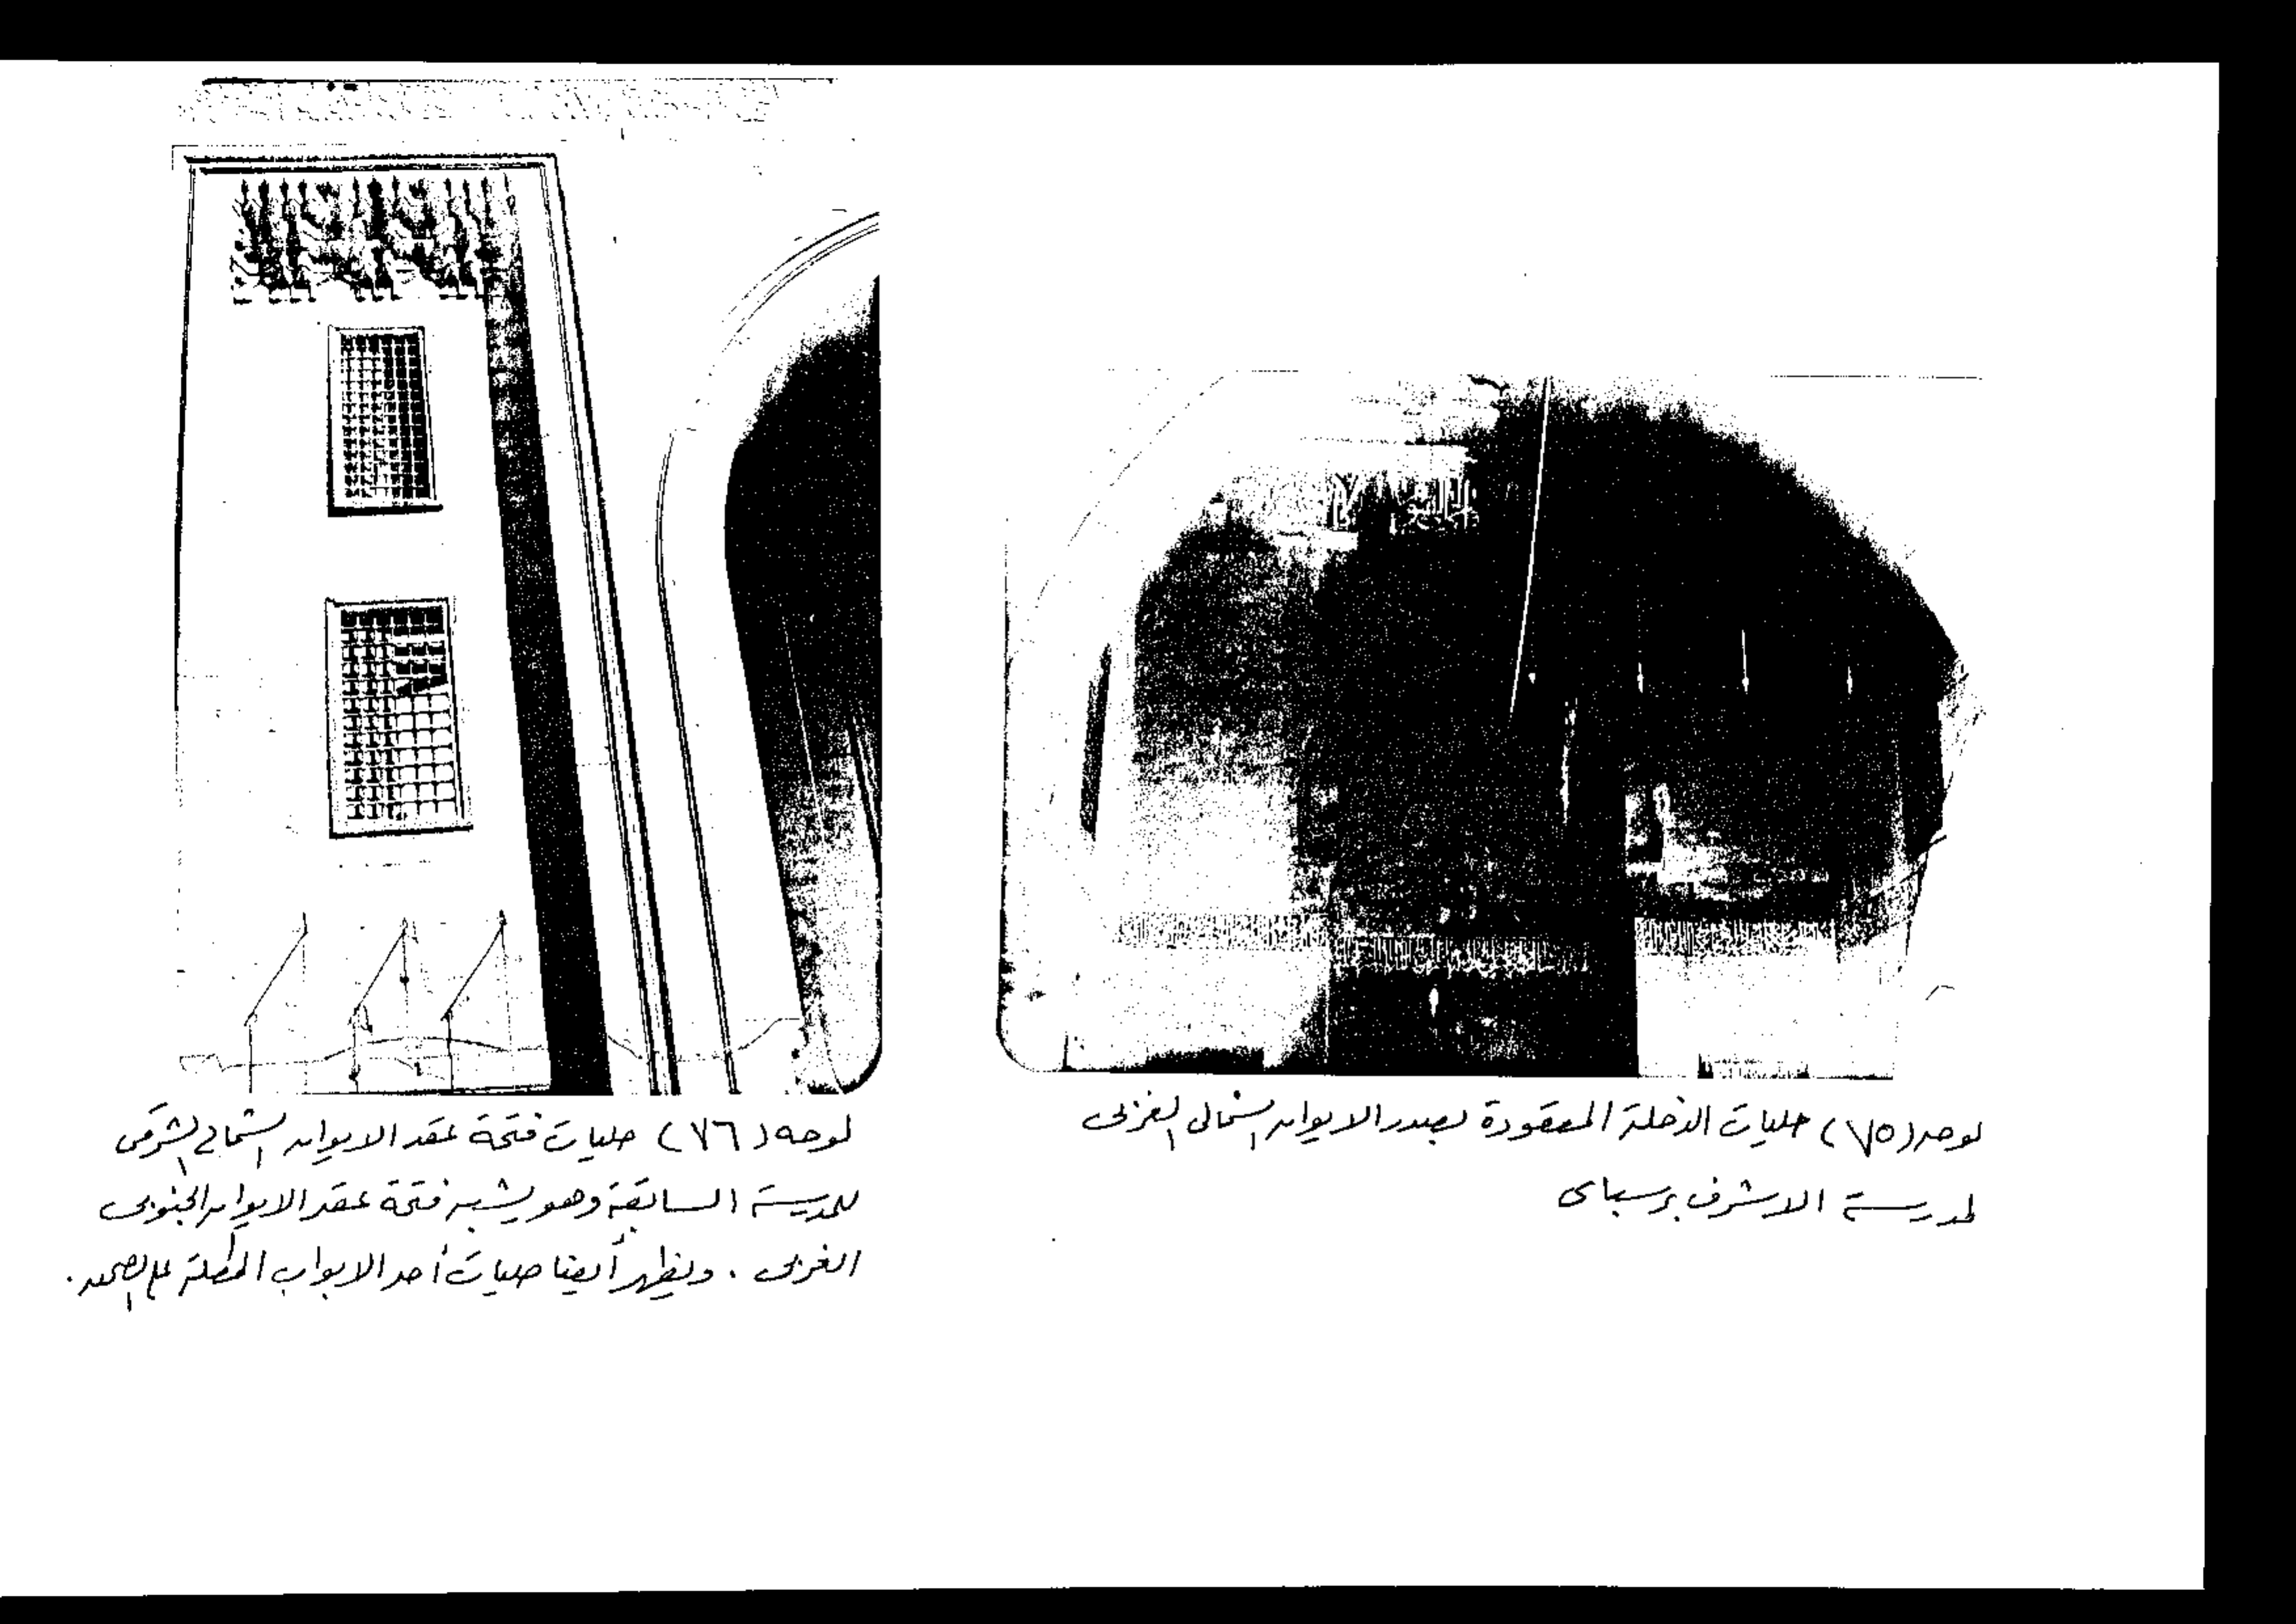 لوحه (٧٥) حليات الدخلة المعقودة بصدر الايوان الشمالى الغربى
لمدرسة الاشرف برسباى
لوحه (٧٦) حليات فتحة عقد الايوان الشمالى الشرقى
للمدرسة السابقة وهو يشبه فتحة عقد الايوان الجنوبى
الغربى . ويظهر أيضا حليات أحد الابواب المطلة على الصحن .